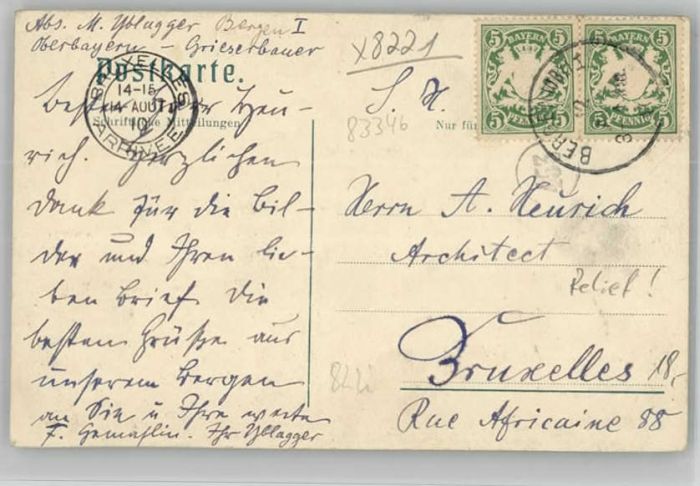 Abs. M. Yblagger Bergen I
Oberbayern – Grieserbauer
x8221
Postkarte.
BRUXELLES
14-15
14 AOUT
10
ARRIVEE
BAYERN
5 5
PFENNIG
BAYERN
5 5
PFENNIG
BERGEN
Schriftliche Mitteilungen
Nur für
83346
Bester Herr Heu-
rich. Herzlichen
Dank für die Bil-
der und Ihren lie-
ben Brief. Die
besten Grüße aus
unserem Bergen
an Sie u Ihre werte
F. Gemahlin. Ihr Yblagger
S. H.
Herrn A. Heurich
Architect
Relief!
Bruxelles
18,-
Rue Africaine 88